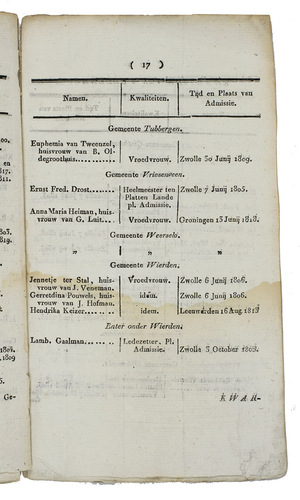 ( 17 )
Namen. Kwaliteiten. Tijd en Plaats van Admissie.
Gemeente Tubbergen.
Euphemia van Tweenzel,
huisvrouw van B. Ol-
degroothuis.......... Vroedvrouw. Zwolle 30 Junij 1809.
Gemeente Vriesenveen.
Ernst Fred. Drost...... Heelmeester ten Zwolle 7 Junij 1805.
Platten Lande
pl. Admissie.
Anna Maria Heiman, huis-
vrouw van G. Luit... Vroedvrouw. Groningen 13 Junij 1818.
Gemeente Weerselo.
" " "
Gemeente Wierden.
Jennetje ter Stal, huis- Vroedvrouw. Zwolle 6 Junij 1806.
vrouw van J. Veneman.
Gerretdina Pouwels, huis- idem. Zwolle 6 Junij 1806.
vrouw van J. Hofman.
Hendrika Keizer...... idem. Leeuwerden 16 Aug. 1813
Enter onder Wierden.
Lamb. Gaalman....... Ledezetter, Pl. Zwolle 3 October 1803.
Admissie.
KWAR-